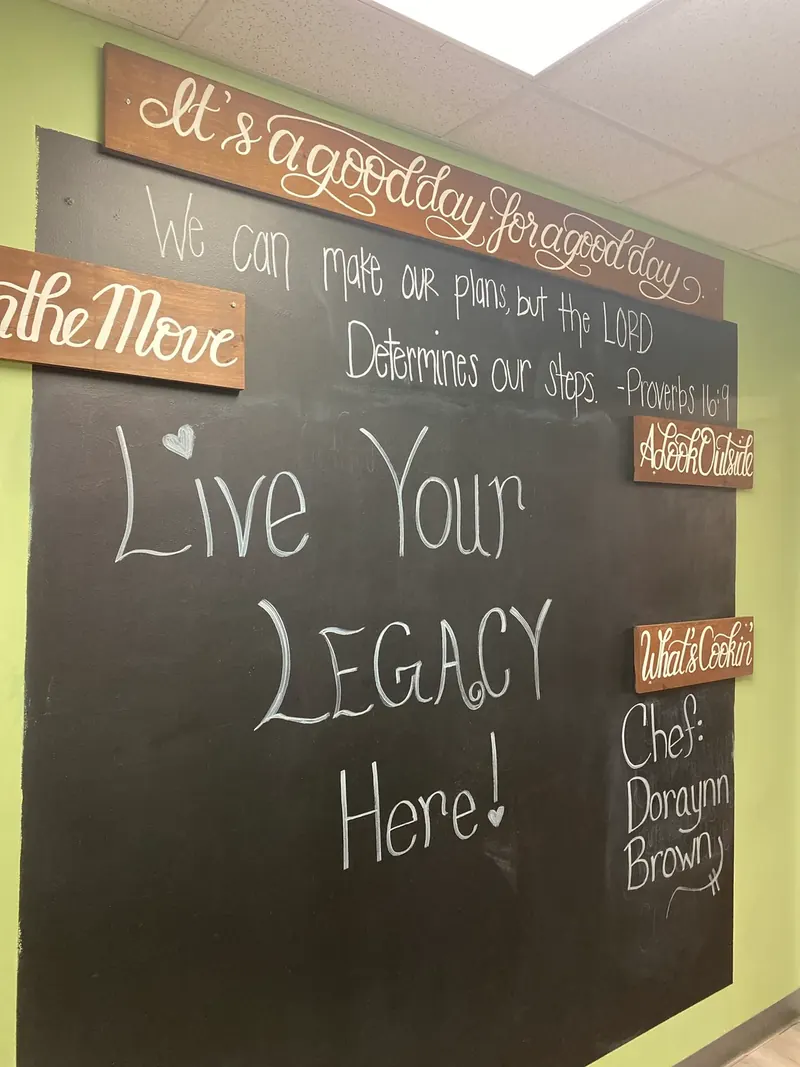 It's a good day for a good day.
We can make our plans, but the LORD
Determines our steps. -Proverbs 16:9
the Move
A look Outside
Live Your
LEGACY
Here!
What's Cookin'
Chef:
Doraynn
Brown